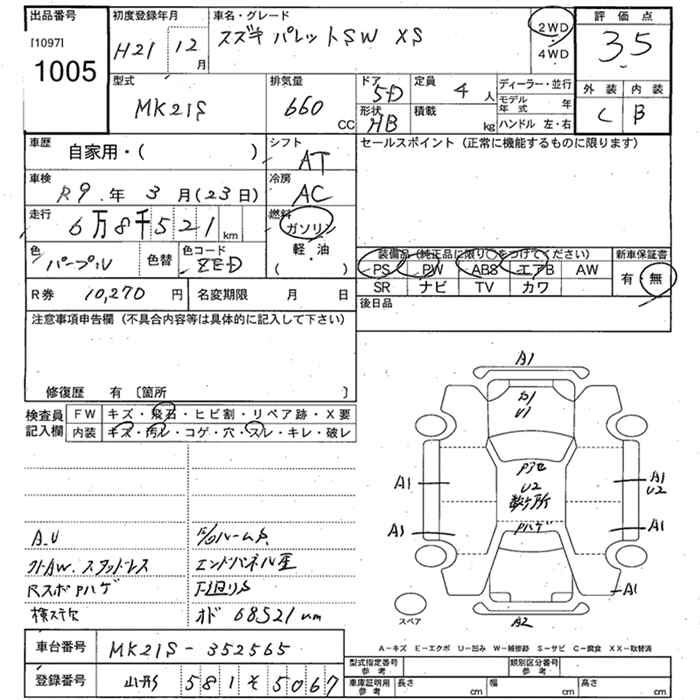 出品番号
[1097]
1005
初度登録年月
H21 12月
車名・グレード
スズキ パレットSW XS
2WD
4WD
評価点
3.5
型式
MK21S
排気量
660 CC
ドア
5D
定員
4人
形状
HB
積載
kg
ディーラー・並行
モデル年式 年
ハンドル 左・右
外装
C
内装
B
車歴
自家用・( )
シフト
AT
セールスポイント(正常に機能するものに限ります)
車検
R9.年 3月(23日)
冷房
AC
走行
6万8千521km
燃料
ガソリン
軽・油
( )
色
パープル
色替
色コード
ZED
装備品(純正品に限り○をつけてください)
PS PW ABS エアB AW
SR ナビ TV カワ
新車保証書
有・無
R券 10,270円
名変期限 月 日
後日品
注意事項申告欄(不具合内容等は具体的に記入して下さい)
修復歴 有〔箇所 〕
検査員記入欄
FW キズ・飛石・ヒビ割・リペア跡・X要
内装 キズ・汚レ・コゲ・穴・スレ・キレ・破レ
A1
U1
U2
A1
A1
A1
U2
A1
Pハゲ
A1
A2
A.U
ルーム
外AW.スタッドレス
エンドパネル歪
RスポPハゲ
下回りS
積ステ欠
オド 68521km
スペア
A−キズ E−エクボ U−凹み W−補修跡 S−サビ C−腐食 XX−取替済
車台番号 MK21S-352565
登録番号 山形 581 そ 5067
型式指定番号 参考
類別区分番号 参考
車庫証明用 参考
長さ cm
幅 cm
高さ cm